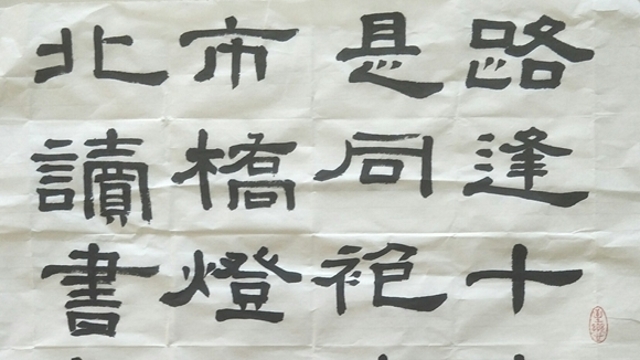 路逢十
是同袍
市橋燈
北讀書